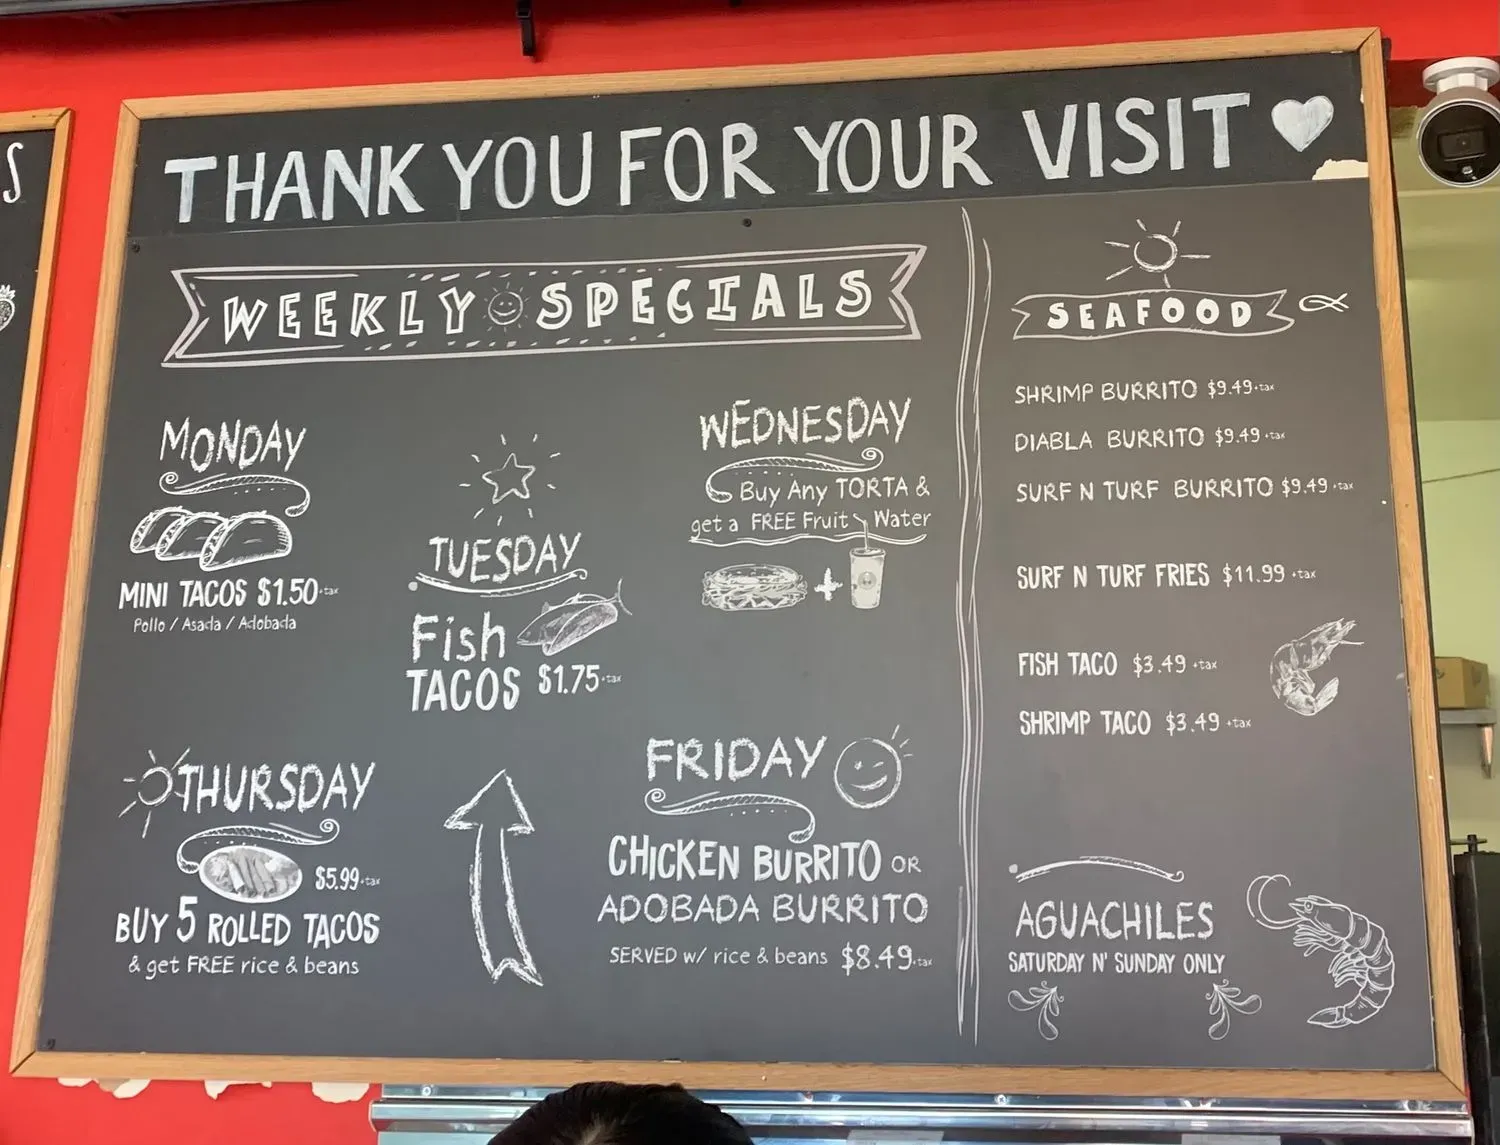 THANK YOU FOR YOUR VISIT
WEEKLY SPECIALS
MONDAY
MINI TACOS $1.50+tax
Pollo / Asada / Adobada
TUESDAY
Fish
TACOS $1.75+tax
WEDNESDAY
Buy Any TORTA &
get a FREE Fruit Water
THURSDAY
$5.99+tax
BUY 5 ROLLED TACOS
& get FREE rice & beans
FRIDAY
CHICKEN BURRITO OR
ADOBADA BURRITO
SERVED w/ rice & beans $8.49+tax
SEAFOOD
SHRIMP BURRITO $9.49+tax
DIABLA BURRITO $9.49+tax
SURF N TURF BURRITO $9.49+tax
SURF N TURF FRIES $11.99+tax
FISH TACO $3.49+tax
SHRIMP TACO $3.49+tax
AGUACHILES
SATURDAY N' SUNDAY ONLY